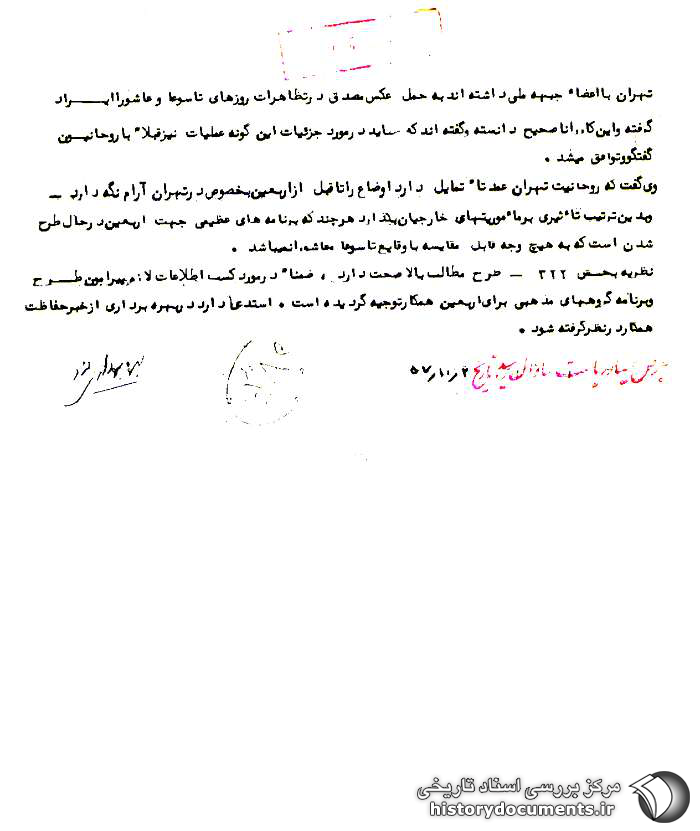 تهران با اعضاء جبهه ملی داشته اند به حمل عکس مصدق در تظاهرات روزهای تاسوعا و عاشورا ایراد
گرفته و این کار را ناصحیح دانسته و گفته اند که باید در مورد جزئیات این گونه عملیات نیز قبلاً با روحانیون
گفتگو و توافق میشد .
وی گفت که روحانیت تهران عمدتاً تمایل دارد اوضاع را تا قبل از اربعین بخصوص در تهران آرام نگه دارد –
و بدین ترتیب تأثیری بر مأموریتهای خارجیان بگذارد هر چند که برنامه های عظیمی جهت اربعین در حال طرح
شدن است که به هیچ وجه قابل مقایسه با وقایع تاسوعا نمیباشد .
نظریه ۳۲۲ – طرح مطالب بالا صحت دارد . ضمناً در مورد کسب اطلاعات لازم پیرامون طرح
و برنامه گروههای مذهبی برای اربعین همکار توجیه گردیده است . استدعا دارد در بهره برداری از خبر حفاظت
همکار در نظر گرفته شود .
ریاست ساواک رسید تاریخ ۵۷/۱۰/۲
مرکز بررسی اسناد تاریخی
historydocuments.ir